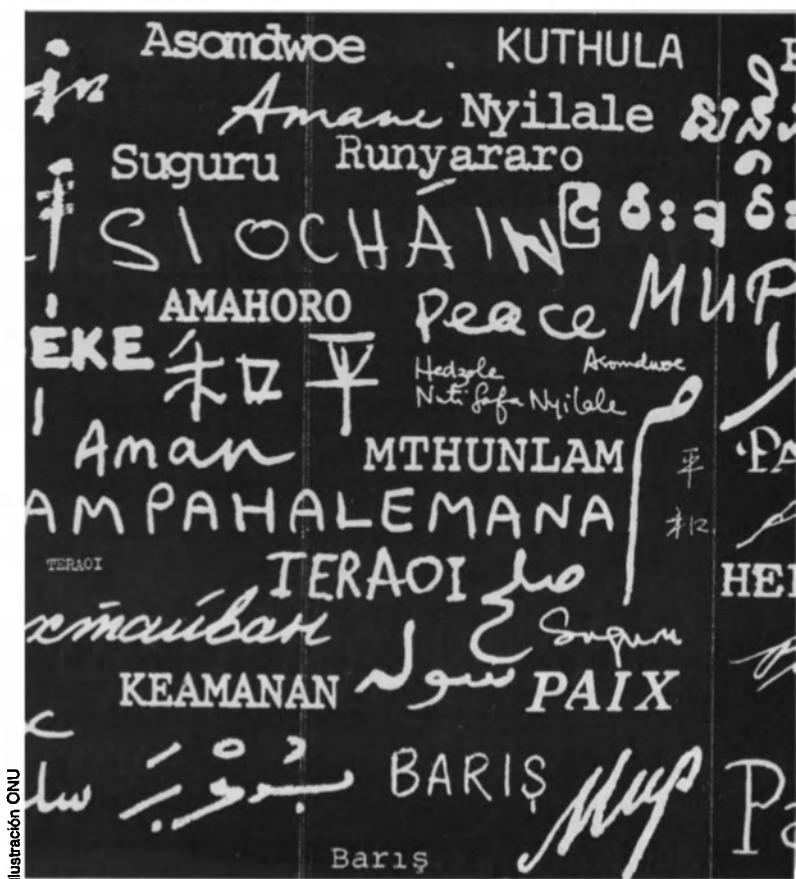 Asomdwoe
KUTHULA
Amani Nyilale
Suguru Runyararo
SIOCHÁIN
AMAHORO
Peace
МИР
EKE
和平
Hedzole
Asomdwoe
Nuti Safa Nyilale
Aman
MTHUNLAM
平和
PA
AMPAHALEMANA
TERAOI
TERAOI
صلح
HE
хтайван
Suguru
KEAMANAN
سوله
PAIX
BARIŞ
Мир
Pa
Barış
Ilustración ONU